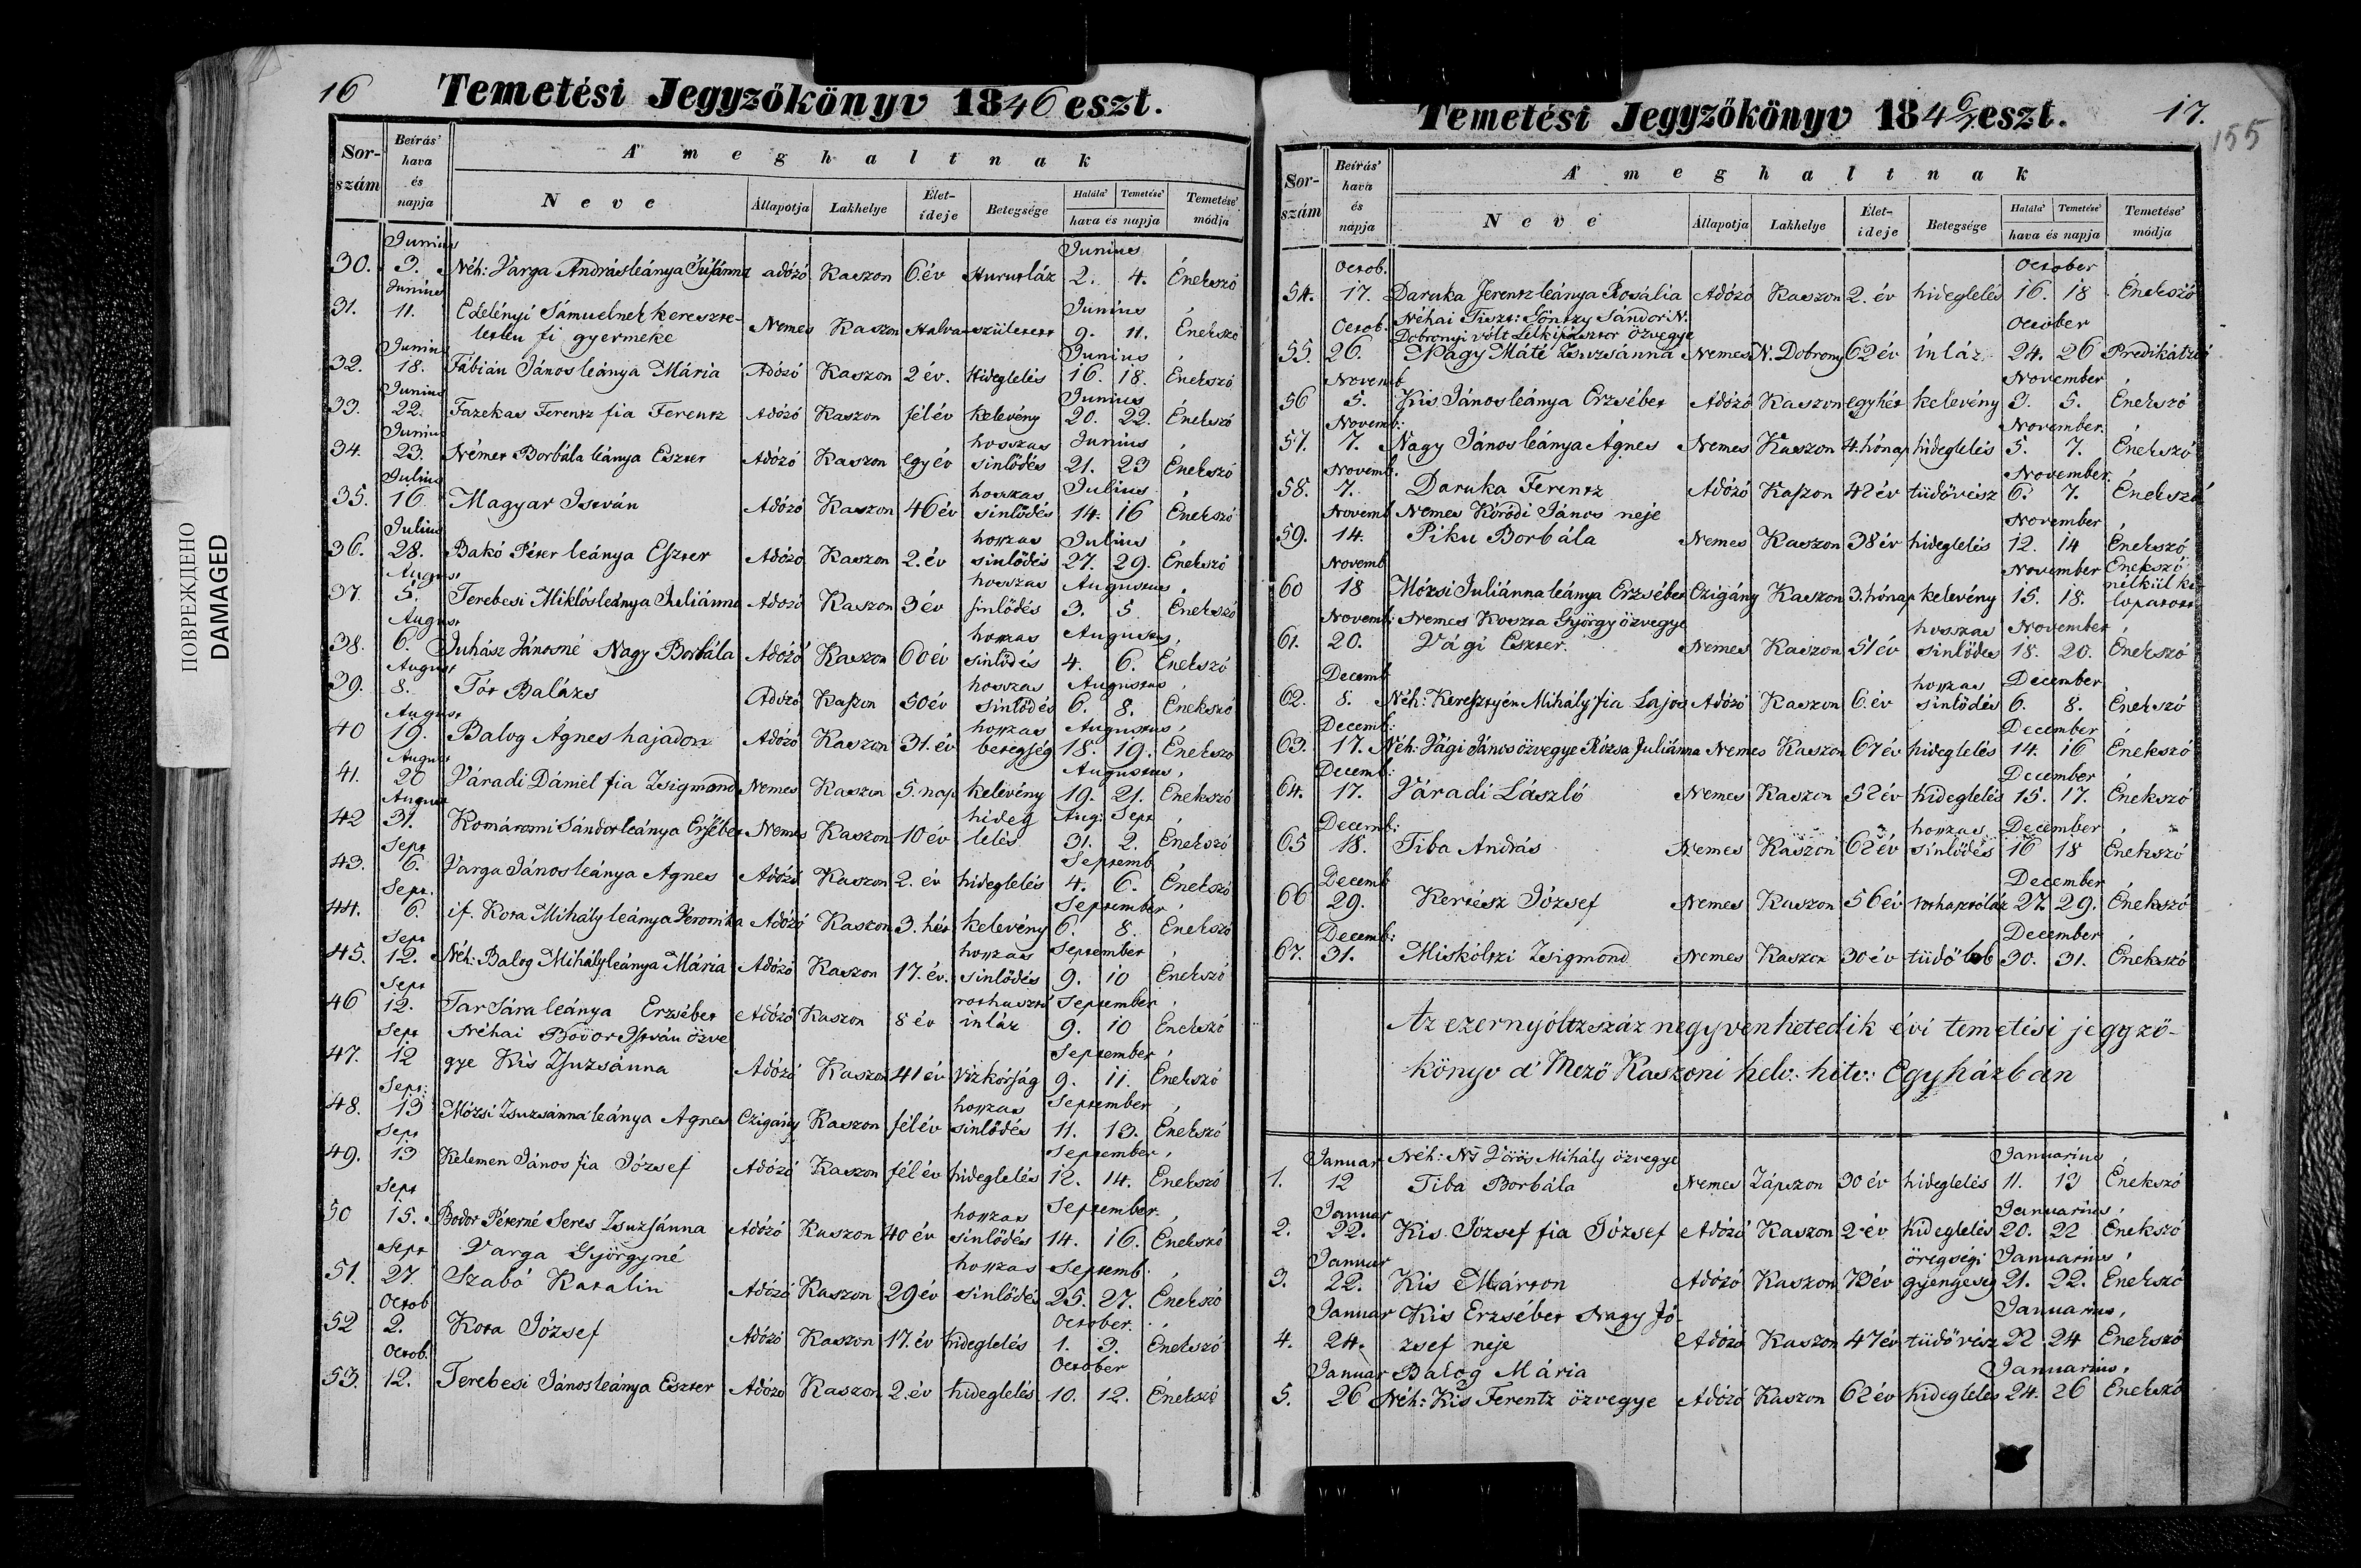 16
Temetési Jegyzőkönyv 1846 eszt.
Sor-szám
Beírás' hava és napja
A' meghaltnak
Neve
Állapotja
Lakhelye
Élet-ideje
Betegsége
Halála'
Temetése'
hava és napja
Temetése' módja
Junius Junius
30. 3. Néh: Varga András leánya Susánna adózó Kaszon 6. év Hurutláz 2. 4. Énekszó
Junius Junius
31. 11. Edelényi Sámuelnek kereszte-
letlen fi gyermeke Nemes Kaszon Halva született 9. 11. Énekszó
Junius Junius
32. 18. Fábián János leánya Mária Adózó Kaszon 2 év. Hideglelés 16. 18. Énekszó
Junius Junius
33. 22. Fazekas Ferentz fia Ferentz Adózó Kaszon fél év kelevény 20. 22. Énekszó
Junius hosszas Junius
34. 23. Német Borbála leánya Eszter Adózó Kaszon egy év sinlődés 21. 23 Énekszó
Julius hosszas Julius
35. 16 Magyar István Adózó Kaszon 46 év sinlődés 14. 16 Énekszó
Julius hosszas Julius
36. 28. Bakó Péter leánya Eszter Adózó Kaszon 2. év sinlődés 27. 29. Énekszó
August hosszas Augustus
37. 5. Terebesi Miklós leánya Juliánna Adózó Kaszon 3 év sinlődés 3. 5 Énekszó
August hosszas Augustus
38. 6. Juhász Jánosné Nagy Borbála Adózó Kaszon 60 év sinlődés 4. 6. Énekszó
August hosszas Augustus
39. 8. Tót Balázs Adózó Kaszon 50 év sinlődés 6. 8. Énekszó
August hosszas Augustus
40 19. Balog Ágnes hajadon Adózó Kaszon 31. év betegség 18. 19. Énekszó
August Augustus
41. 20 Váradi Dániel fia Zsigmond Nemes Kaszon 5. nap kelevény 19. 21. Énekszó
August hideg Aug: Sept
42 31. Komáromi Sándor leánya Ersébet Nemes Kaszon 10 év lelés 31. 2. Énekszó
Sept Septemb
43. 6. Varga János leánya Agnes Adózó Kaszon 2. év hideglelés 4. 6. Énekszó
Sept. September
44. 6. if. Kota Mihály leánya Veronika Adózó Kaszon 3. hét kelevény 6. 8. Énekszó
Sept hosszas September
45. 12. Néh: Balog Mihály leánya Mária Adózó Kaszon 17. év. sinlődés 9. 10 Énekszó
Sept rothasztó September
46 12. Tar Sára leánya Erzsébet Adózó Kaszon 8 év inláz 9. 10 Énekszó
Sept Néhai Bodor István özve September
47. 12 gye Kis Zsuzsánna Adózó Kaszon 41 év Vizkórság 9. 11. Énekszó
Sept: hosszas September
48. 13 Mózsi Zsuzsánna leánya Agnes Czigány Kaszon fél év sinlődés 11. 13. Énekszó
Sept September
49. 13 Kelemen János fia József Adózó Kaszon fél év hideglelés 12. 14. Énekszó
Sept hosszas September
50 15. Bodor Péterné Seres Zsuzsánna Adózó Kaszon 40 év sinlődés 14. 16. Énekszó
Sept Varga Györgyné hosszas Septemb.
51. 27. Szabó Katalin Adózó Kaszon 29 év sinlődés 25. 27. Énekszó
Octob October.
52 2. Kota József Adózó Kaszon 17. év hideglelés 1. 3. Énekszó
Octob. October
53. 12. Terebesi János leánya Eszter Adózó Kaszon 2. év hideglelés 10. 12. Énekszó
Temetési Jegyzőkönyv 184 6/7 eszt.
17.
155
Sor-szám
Beírás' hava és napja
A' meghaltnak
Neve
Állapotja
Lakhelye
Élet-ideje
Betegsége
Halála'
Temetése'
hava és napja
Temetése' módja
Octob. October
54. 17. Daruka Ferentz leánya Rosália Adózó Kaszon 2. év hideglelés 16. 18 Énekszó
Octob. Néhai Tiszt: Göntzy Sándor N. October
Dobronyi vólt Lelkipásztor özvegye
55. 26. Nagy Máté Zsuzsánna Nemes N. Dobrony 62 év inláz 24. 26 Predikátzió
Novemb November
56 5. Kis János leánya Erzsébet Adózó Kaszon egy hét kelevény 3. 5. Énekszó
Novemb: November.
57. 7. Nagy János leánya Ágnes Nemes Kaszon 4. hónap hideglelés 5. 7. Énekszó
Novemb. November.
58. 7. Daruka Ferentz Adózó Kaszon 42 év tüdővész 6. 7. Énekszó
Novemb Nemes Koródi János neje November
59. 14. Piku Borbála Nemes Kaszon 38 év hideglelés 12. 14 Énekszó
Novemb November Énekszó
60 18 Mózsi Juliánna leánya Erzsébet Czigány Kaszon 3. hónap kelevény 15. 18. nélkül ki
lopatott
Novemb: Nemes Koszta György özvegye hosszas November
61. 20. Vági Eszter. Nemes Kaszon 51 év sinlődés 18. 20. Énekszó
Decemb hosszas December
62. 8. Néh: Keresztyén Mihály fia Lajos Adózó Kaszon 6. év sinlődés 6. 8. Énekszó
Decemb: December
63. 17. Néh: Vági János özvegye Rózsa Juliánna Nemes Kaszon 67 év hideglelés 14. 16 Énekszó
Decemb: December
64. 17. Váradi László Nemes Kaszon 52 év hideglelés 15. 17. Énekszó
Decemb: hosszas December
65 18. Tiba András Nemes Kaszon 62 év sinlődés 16 18 Énekszó
Decemb December
66 29. Kertész József Nemes Kaszon 56 év 27. 29. Énekszó
Decemb: December
67. 31. Miskóltzi Zsigmond Nemes Kaszon 30 év tüdő lob 30. 31. Énekszó
Az ezernyóltzszáz negyvenhetedik évi temetési jegyző-
könyv a' Mező Kaszoni helv: hitv: Egyházban
Januar Néh: Ns Vörös Mihály özvegye Januarius
1. 12 Tiba Borbála Nemes Zápszon 30 év hideglelés 11. 13 Énekszó
Januar Januarius
2. 22. Kis József fia József Adózó Kaszon 2 év hideglelés 20. 22 Énekszó
Januar öregségi Januarius
3. 22. Kis Márton Adózó Kaszon 73 év gyengeség 21. 22. Énekszó
Januar Kis Erzsébet Nagy Jó- Januarius
4. 24. zsef neje Adózó Kaszon 47 év tüdővész 22 24 Énekszó
Januar Balog Mária Januarius
5. 26 Néh: Kis Ferentz özvegye Adózó Kaszon 62 év hideglelés 24. 26 Énekszó
ПОВРЕЖДЕНО
DAMAGED